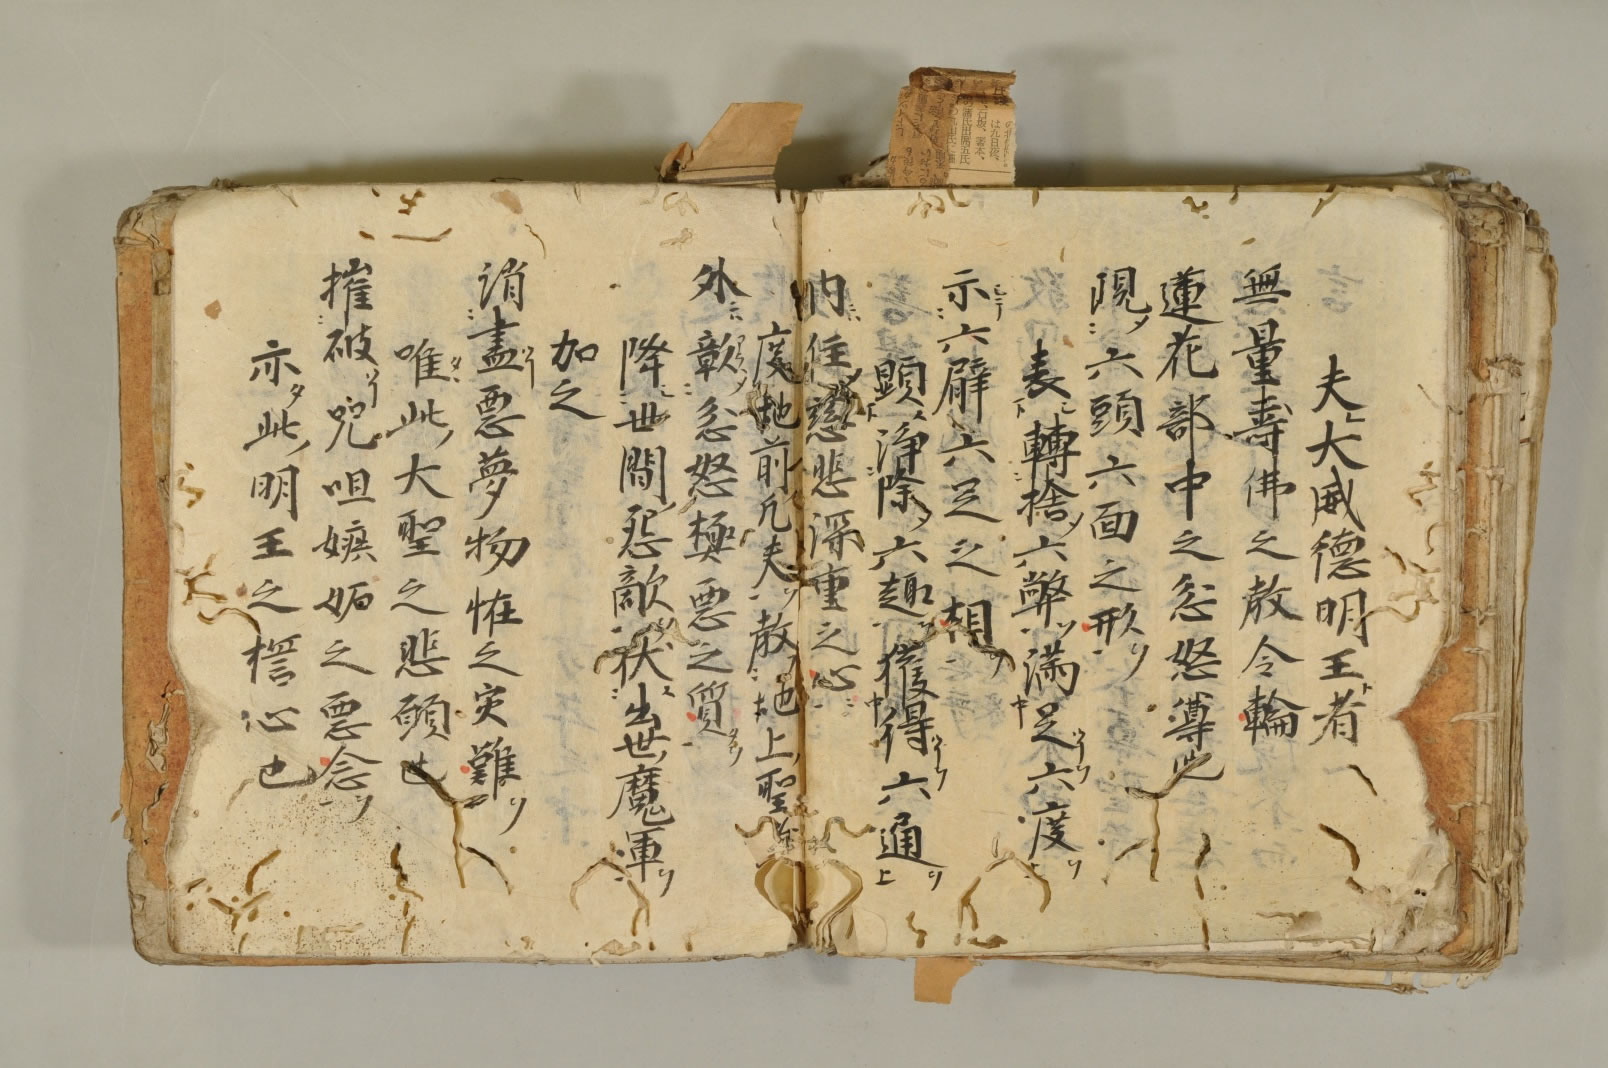 夫大威徳明王者
無量壽佛之教令輪
蓮花部中之忿怒尊也
現六頭六面之形
表轉捨六弊満足六度
示六臂六足之相
顕浄除六趣獲得六通
内住慈悲深重之心
度地前凡夫教地上聖
外彰忿怒極悪之質
降世間怨敵伏出世魔軍
加之
消盡悪夢物恠之灾難
唯此大聖之悲願也
摧破呪咀嫉妬之悪念
亦此明王之誓心也